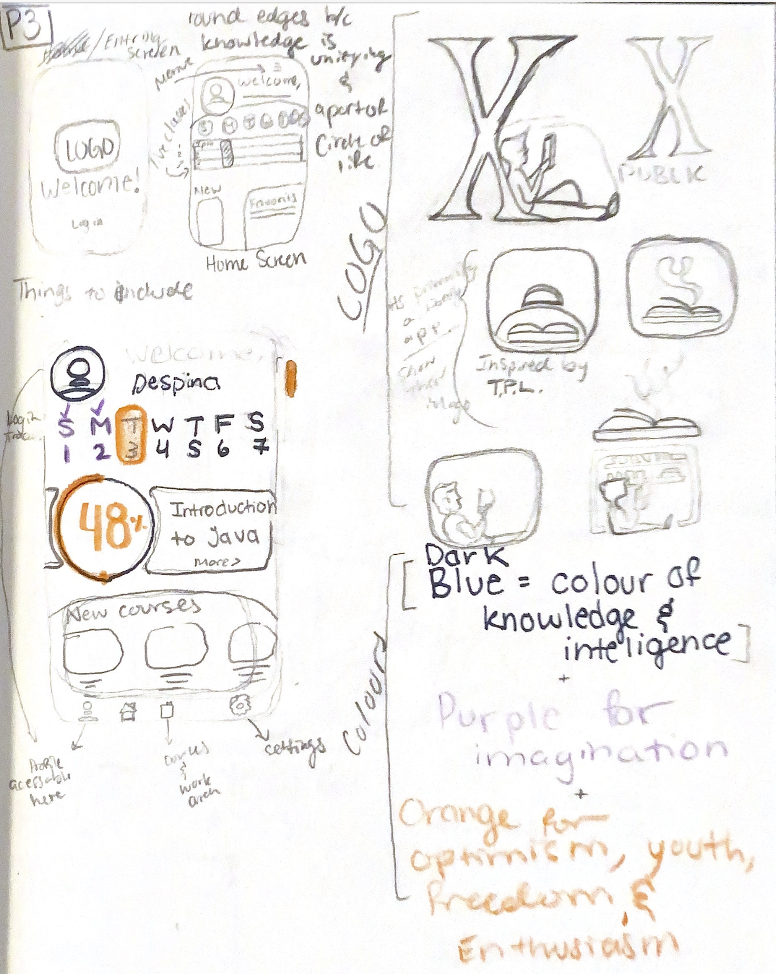 P3
Entering
screen
round edges b/c
knowledge is
unifying
&
apart of
Circle of
life
LOGO
Welcome!
Log in
welcome,
New
Favorits
Home Screen
Things to include
welcome,
Despina
S M T W T F S
1 2 3 4 5 6 7
48%
Introduction
to Java
More>
New courses
Profile
acessable
here
work
settings
LOGO
X
X
PUBLIC
Inspired by
T.P.L.
Colours
Dark
Blue = colour of
knowledge &
intelligence
+
Purple for
imagination
+
Orange for
optimism, youth,
freedom, &
Enthusiasm